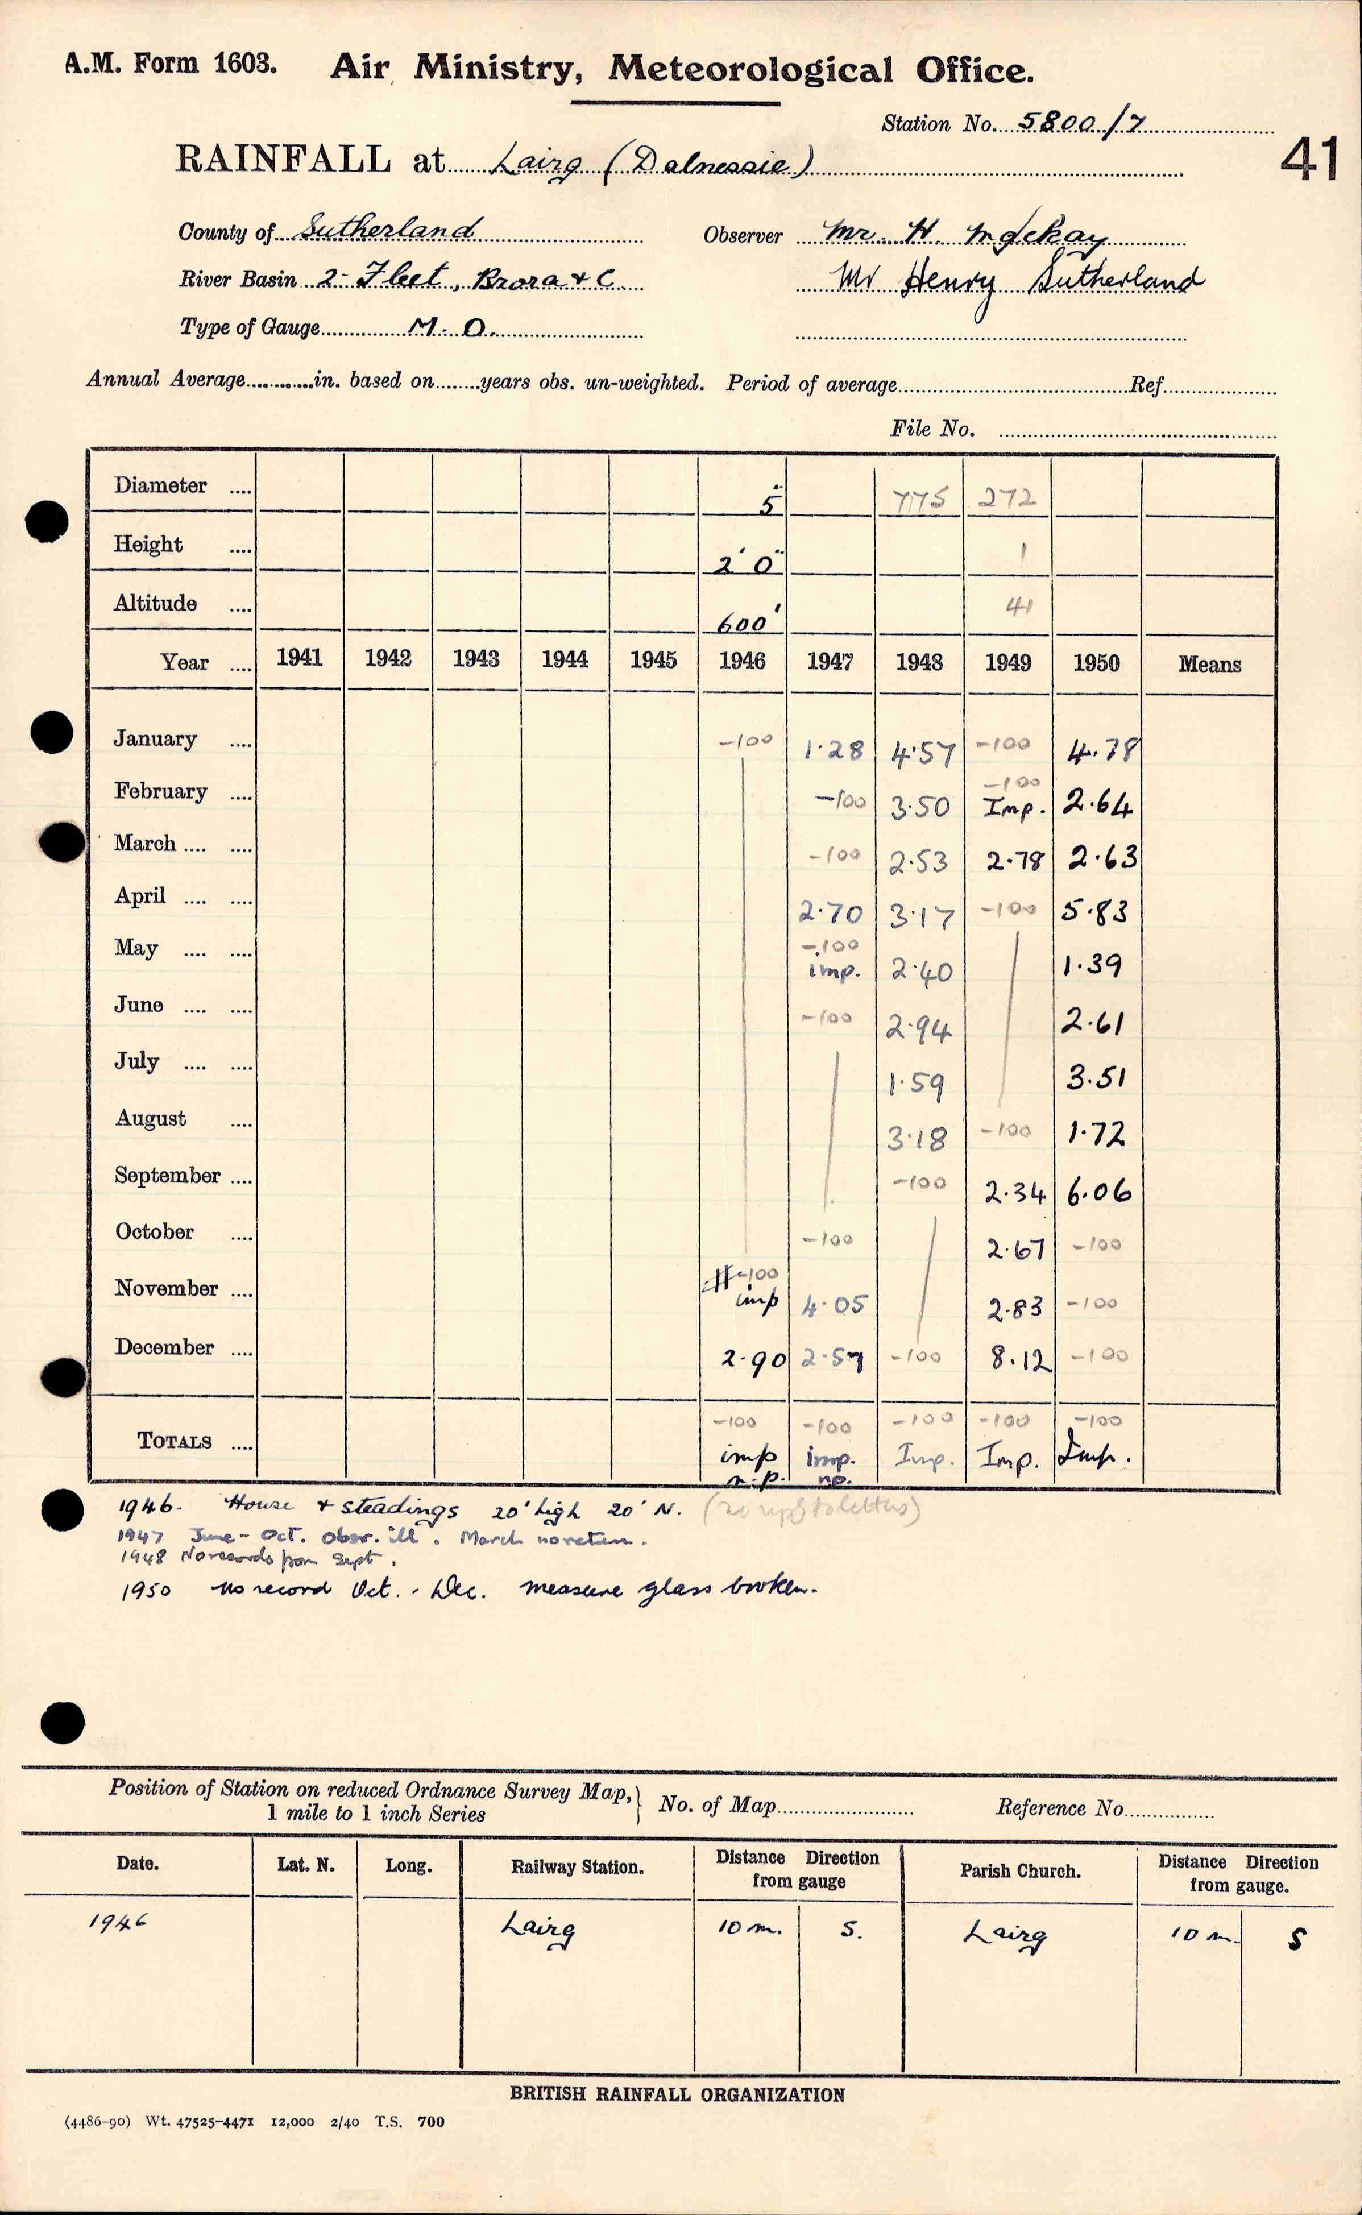 A.M. Form 1603. Air Ministry, Meteorological Office.
Station No. 5800/7
41
RAINFALL at Lairg (Dalnessie)
County of Sutherland Observer Mr. H. McKay
River Basin 2- Fleet, Brora & C. Mr Henry Sutherland
Type of Gauge M.O.
Annual Average............in. based on........years obs. un-weighted. Period of average Ref.
File No.
Diameter .... 5" 775 272
Height .... 2' 0" 1
Altitude .... 600' 41
Year .... 1941 1942 1943 1944 1945 1946 1947 1948 1949 1950 Means
January .... -100 1.28 4.57 -100 4.78
February .... -100 3.50 -100 Imp. 2.64
March .... .... -100 2.53 2.78 2.63
April .... .... 2.70 3.17 -100 5.83
May .... .... -100 imp. 2.40 1.39
June .... .... -100 2.94 2.61
July .... .... 1.59 3.51
August .... 3.18 -100 1.72
September .... -100 2.34 6.06
October .... -100 2.67 -100
November .... -100 imp 4.05 2.83 -100
December .... 2.90 2.57 -100 8.12 -100
TOTALS .... -100 -100 -100 -100 -100
imp imp. Imp. Imp. Imp.
n.p. np.
1946. House & steadings 20' high 20' N.
1947 June - Oct. obsr. ill. March no return.
1948 No records from Sept.
1950 no record Oct. - Dec. measure glass broken.
Position of Station on reduced Ordnance Survey Map, 1 mile to 1 inch Series } No. of Map Reference No.
Date. Lat. N. Long. Railway Station. Distance Direction from gauge Parish Church. Distance Direction from gauge.
1946 Lairg 10 m. S. Lairg 10 m. S
BRITISH RAINFALL ORGANIZATION
(4486-90) Wt. 47525-4471 12,000 2/40 T.S. 700